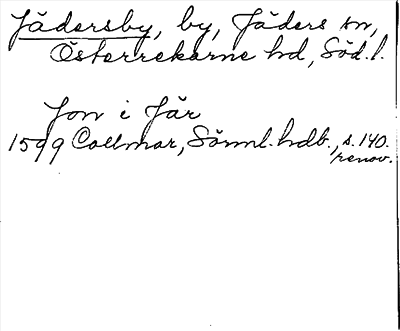 Jädersby, by, Jäders sn,
Österrekarne hd, Söd. l.
Jon i Jär
1599 Collmar, Sörml. hdb., s. 140.
renov.